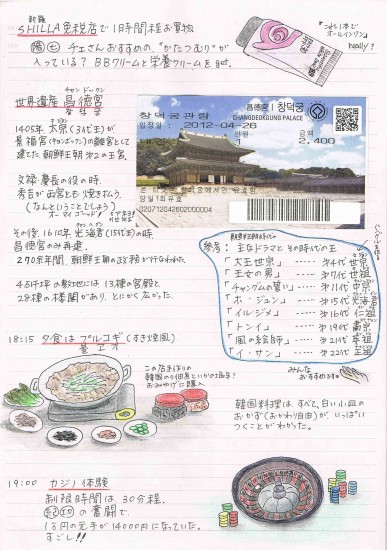 新羅
SHILLA免税店で1時間程お買物
チェさんおすすめの、"かたつむり"が
入っている? BBクリームと栄養クリームをget。
これ1本で
オールインワン
really?
世界遺産 昌徳宮
チャンドックン
창덕궁
1405年 太宗(3代王)が
景福宮(キョンボックン)の離宮として
建てた朝鮮王朝 第2の王宮。
文禄・慶長の役の時、
秀吉が両宮とも焼き払う。
(なんということでしょう)
オーマイゴッド
その後、1610年 光海君(15代王)の時
昌徳宮のみ再建。
270年間、朝鮮王朝の政務が行なわれた。
13棟の宮殿と
28棟の楼閣があり、とにかく広かった。
창덕궁관람
昌徳宮 창덕궁
CHANGDEOKGUNG PALACE
입장일 : 2012-04-26
2,400
당일1회유효
020712042602000004
参考: 主なドラマとその時代の王
「大王世宗」……第4代 世宗
「王女の男」……第7代 世祖
「チャングムの誓い」……第11代 中宗
「ホ・ジュン」……第15代 光海君
「イルジメ」……第16代 仁祖
「トンイ」……第19代 粛宗
「風の絵師」……第21代 英祖
「イ・サン」……第22代 正祖
みんな
おすすめです。
18:15 夕食は プルコギ(すき焼風)
불고기
この店手作りの
おみやげに購入
韓国料理は、すべて、白い小皿の
おかず(おかわり自由)が、いっぱい
つくことがわかった。
19:00 カジノ体験
制限時間は 30分程。
の奮闘で、
1万円の元手が14000円になっていた。
すごし!!